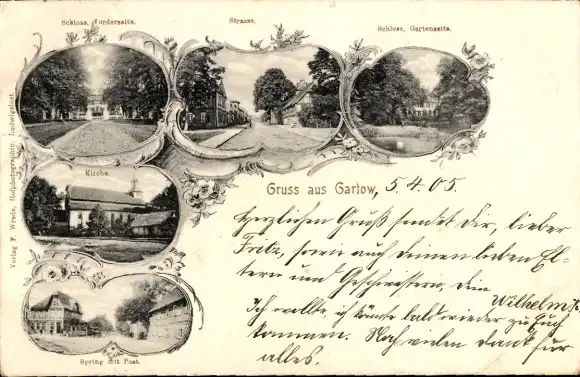 Schloss, Vorderseite.
Strasse.
Schloss, Gartenseite.
Kirche.
Spring mit Post.
Verlag F. Wrede, Hofphotographin, Ludwigslust.
Gruss aus Gartow, 5.4.05.
Herzlichen Gruß sendet Dir, lieber
Fritz, sowie auch deinen lieben El-
tern und Geschwistern, Dein
Wilhelm
Ich wollte, ich könnte bald wieder zu Euch
kommen. Noch vielen Dank für
alles.